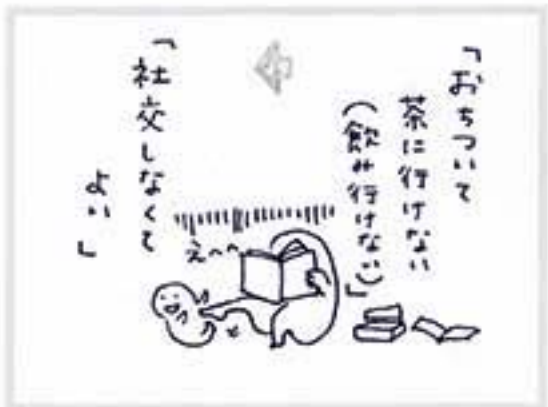 「おちついて
茶に行けない
(飲み行けない)」
「社交しなくて
よい」
えへへ